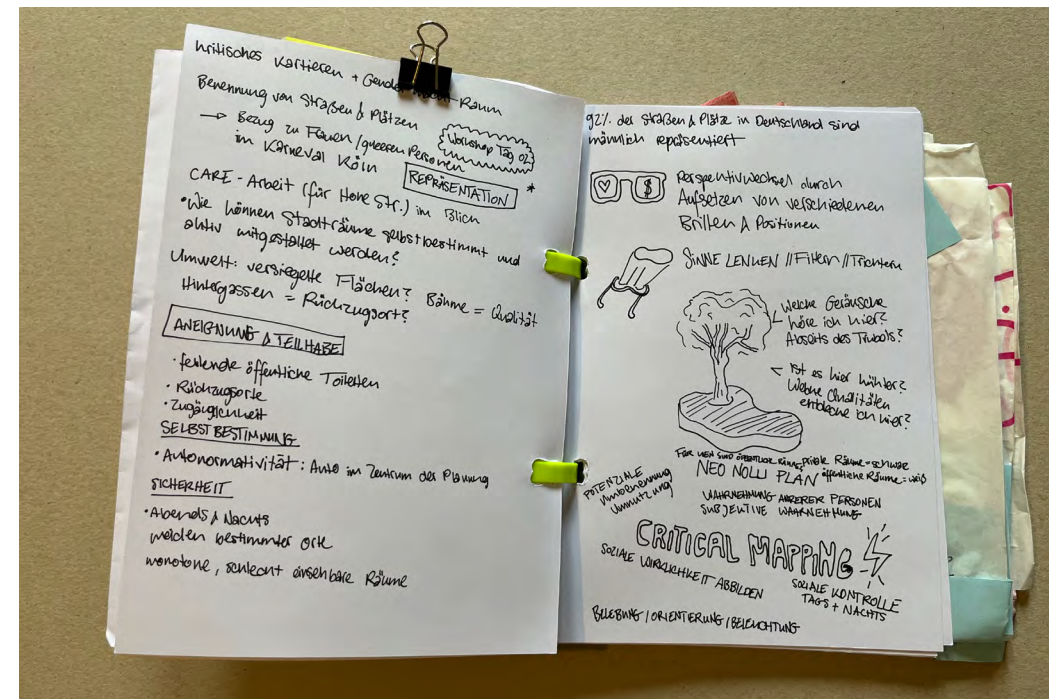 kritisches Kartieren + Gender macht Raum
Benennung von Straßen & Plätzen
→ Bezug zu Frauen/queeren Personen
im Karneval Köln
Workshop Tag 02
REPRÄSENTATION *
CARE-Arbeit (für Hohe Str.) im Blick
• Wie können Stadträume selbstbestimmt und
aktiv mitgestaltet werden?
Umwelt: versiegelte Flächen? Bäume = Qualität
Hintergassen = Rückzugsort?
ANEIGNUNG & TEILHABE
• fehlende öffentliche Toiletten
• Rückzugsorte
• Zugänglichkeit
SELBSTBESTIMMUNG
• Autonormativität: Auto im Zentrum der Planung
SICHERHEIT
• Abends & Nachts
meiden bestimmter Orte
monotone, schlecht einsehbare Räume
92% der Straßen & Plätze in Deutschland sind
männlich repräsentiert
$
Perspektivwechsel durch
Aufsetzen von verschiedenen
Brillen & Positionen
SINNE LENKEN // Filtern // Trichtern
Welche Geräusche
höre ich hier?
Abseits des Trubels?
Ist es hier kühler?
Welche Qualitäten
entdecke ich hier?
FÜR WEN SIND ÖFFENTLICHE RÄUME, private Räume = schwarz
NEO NOLLI PLAN öffentliche Räume = weiß
POTENZIALE
Umbenennung
Umnutzung
WAHRNEHMUNG ANDERER PERSONEN
SUBJEKTIVE WAHRNEHMUNG
CRITICAL MAPPING
SOZIALE WIRKLICHKEIT ABBILDEN
SOZIALE KONTROLLE
TAGS + NACHTS
BELEBUNG / ORIENTIERUNG / BELEUCHTUNG